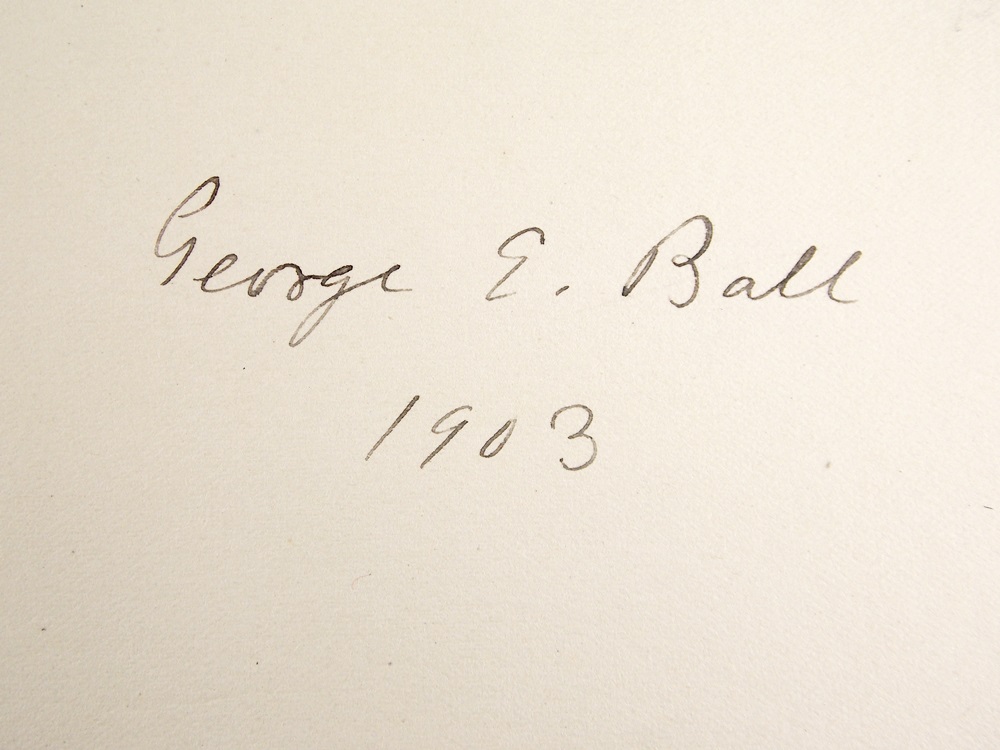 George E. Ball
1903